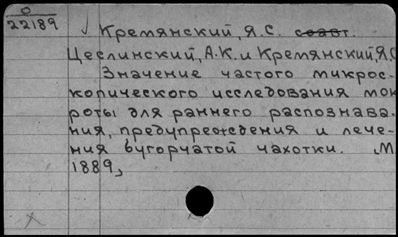 О
22189
√ Кремянский, Я.С. соавт.
Цеслинский, А.К. и Кремянский, Я.С
Значение частого микрос-
копического исследования мок
роты для раннего распознава-
ния, предупреждения и лече-
ния бугорчатой чахотки. М.
1889,